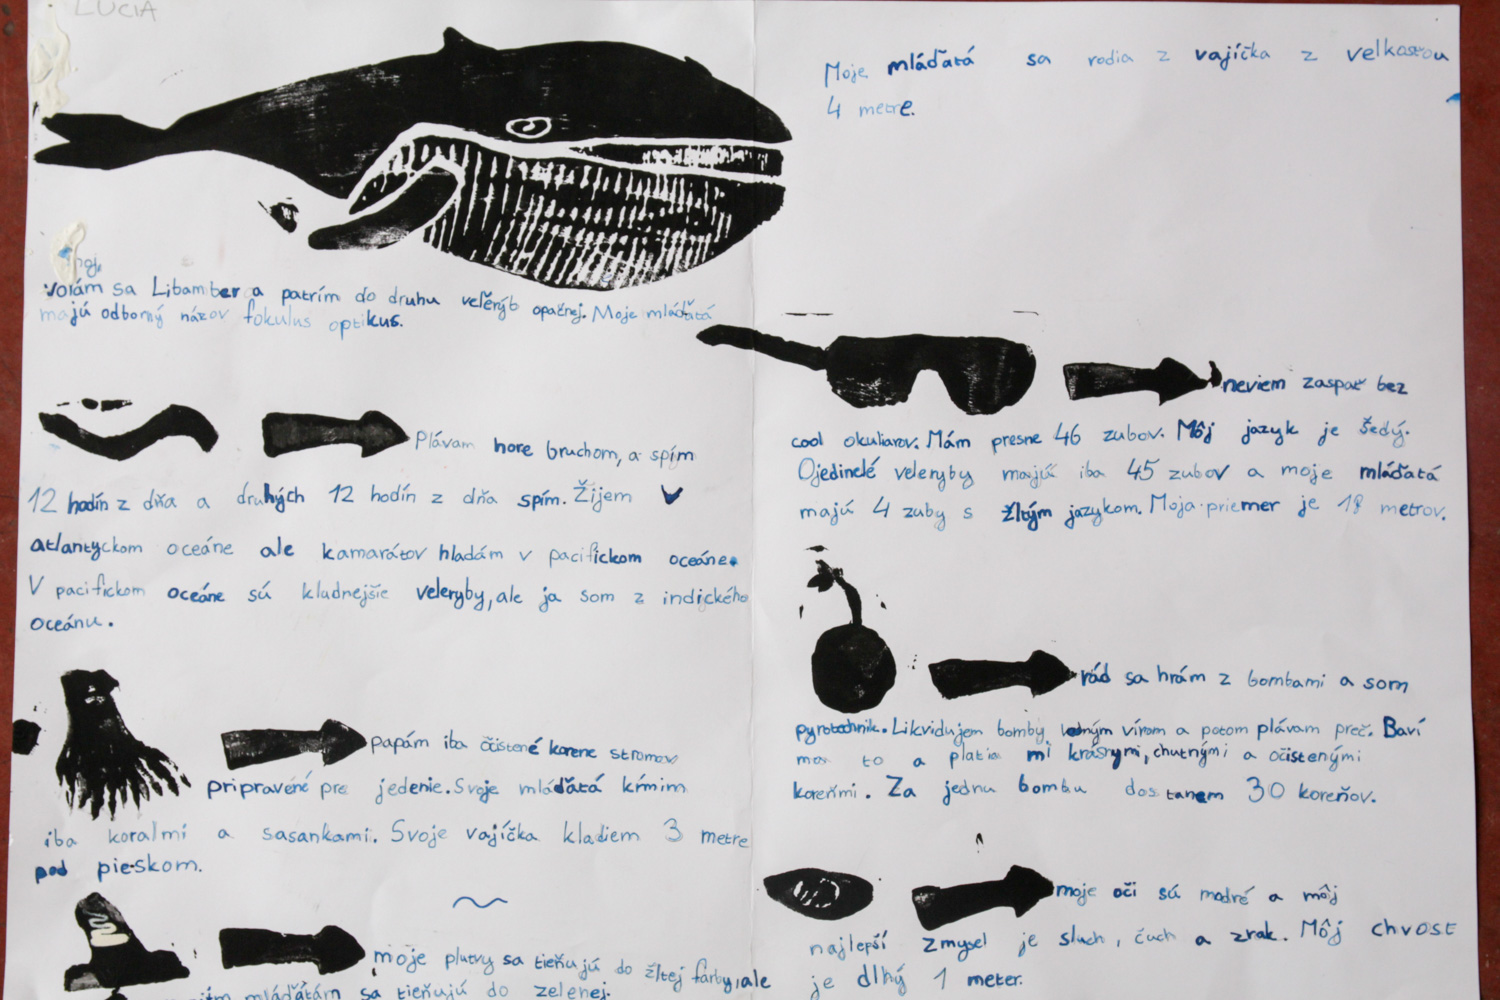 LUCIA
Ahoj,
volám sa Libamber a patrím do druhu veľerýb opačnej. Moje mláďatá
majú odborný názov fokulus optikus.
Plávam hore bruchom, a spím
12 hodín z dňa a druhých 12 hodín z dňa spím. Žijem v
atlantyckom oceáne ale kamarátov hladám v pacifickom oceáne.
V pacifickom oceáne sú kludnejšie veleryby, ale ja som z indického
oceánu.
papám iba očistené korene stromov
pripravené pre jedenie. Svoje mláďatá kŕmim
iba koralmi a sasankami. Svoje vajíčka kladiem 3 metre
pod pieskom.
moje plutvy sa tieňujú do žltej farby, ale
mláďatám sa tieňujú do zelenej.
Moje mláďatá sa rodia z vajíčka z velkosťou
4 metre.
neviem zaspať bez
cool okuliarov. Mám presne 46 zubov. Môj jazyk je šedý.
Ojedinelé veleryby majú iba 45 zubov a moje mláďatá
majú 4 zuby s žltým jazykom. Moja priemer je metrov.
rád sa hrám z bombami a som
pyrotechnik. Likvidujem bomby vodným vírom a potom plávam preč. Baví
ma to a platia mi krásnymi, chutnými a očistenými
koreňmi. Za jednu bombu dostanem 30 koreňov.
moje oči sú modré a môj
najlepší zmysel je sluch, čuch a zrak. Môj chvost
je dlhý 1 meter.